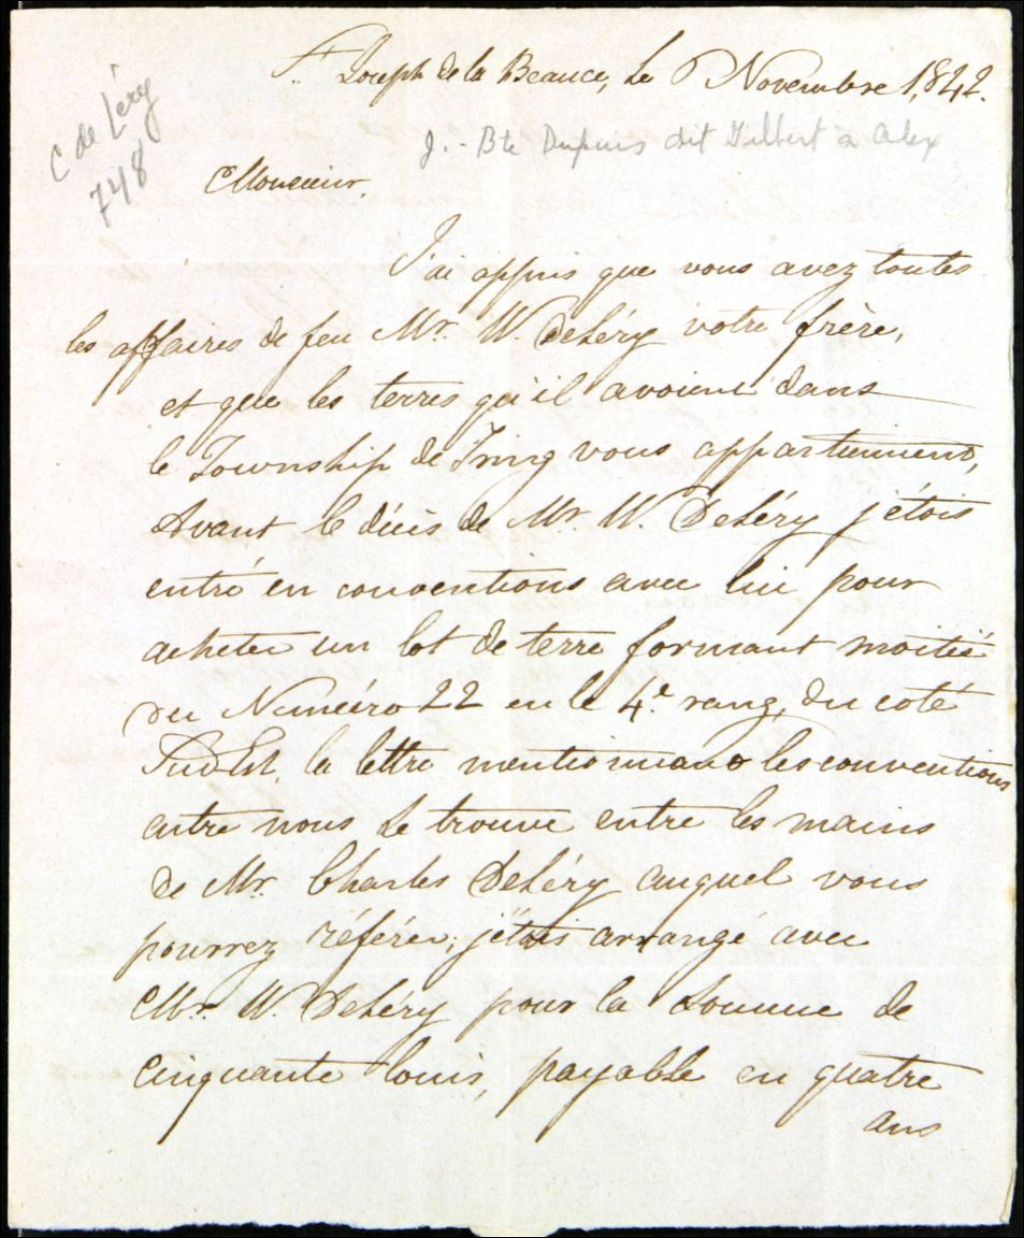 St Joseph de la Beauce, Le 6 Novembre 1,842.
C de Léry
748
J.-Bte Dupuis dit Gilbert à Alex
Monsieur,
J'ai appris que vous avez toutes
les affaires de feu Mr. W. DeLéry votre frère,
et que les terres qu'il avoient dans
le Township de Tring vous appartiennent,
Avant le décès de Mr. W. DeLéry j'étois
entré en conventions avec lui pour
acheter un lot de terre formant moitié
du Numéiro 22 en le 4e. rang, du coté
Sud Est, la lettre mentionnant les conventions
entre nous Se trouve entre les mains
de Mr. Charles DeLéry auquel vous
pourrez référer; j'étois arrangé avec
Mr. W. DeLéry pour la Somme de
Cinquante louis, payable en quatre
ans